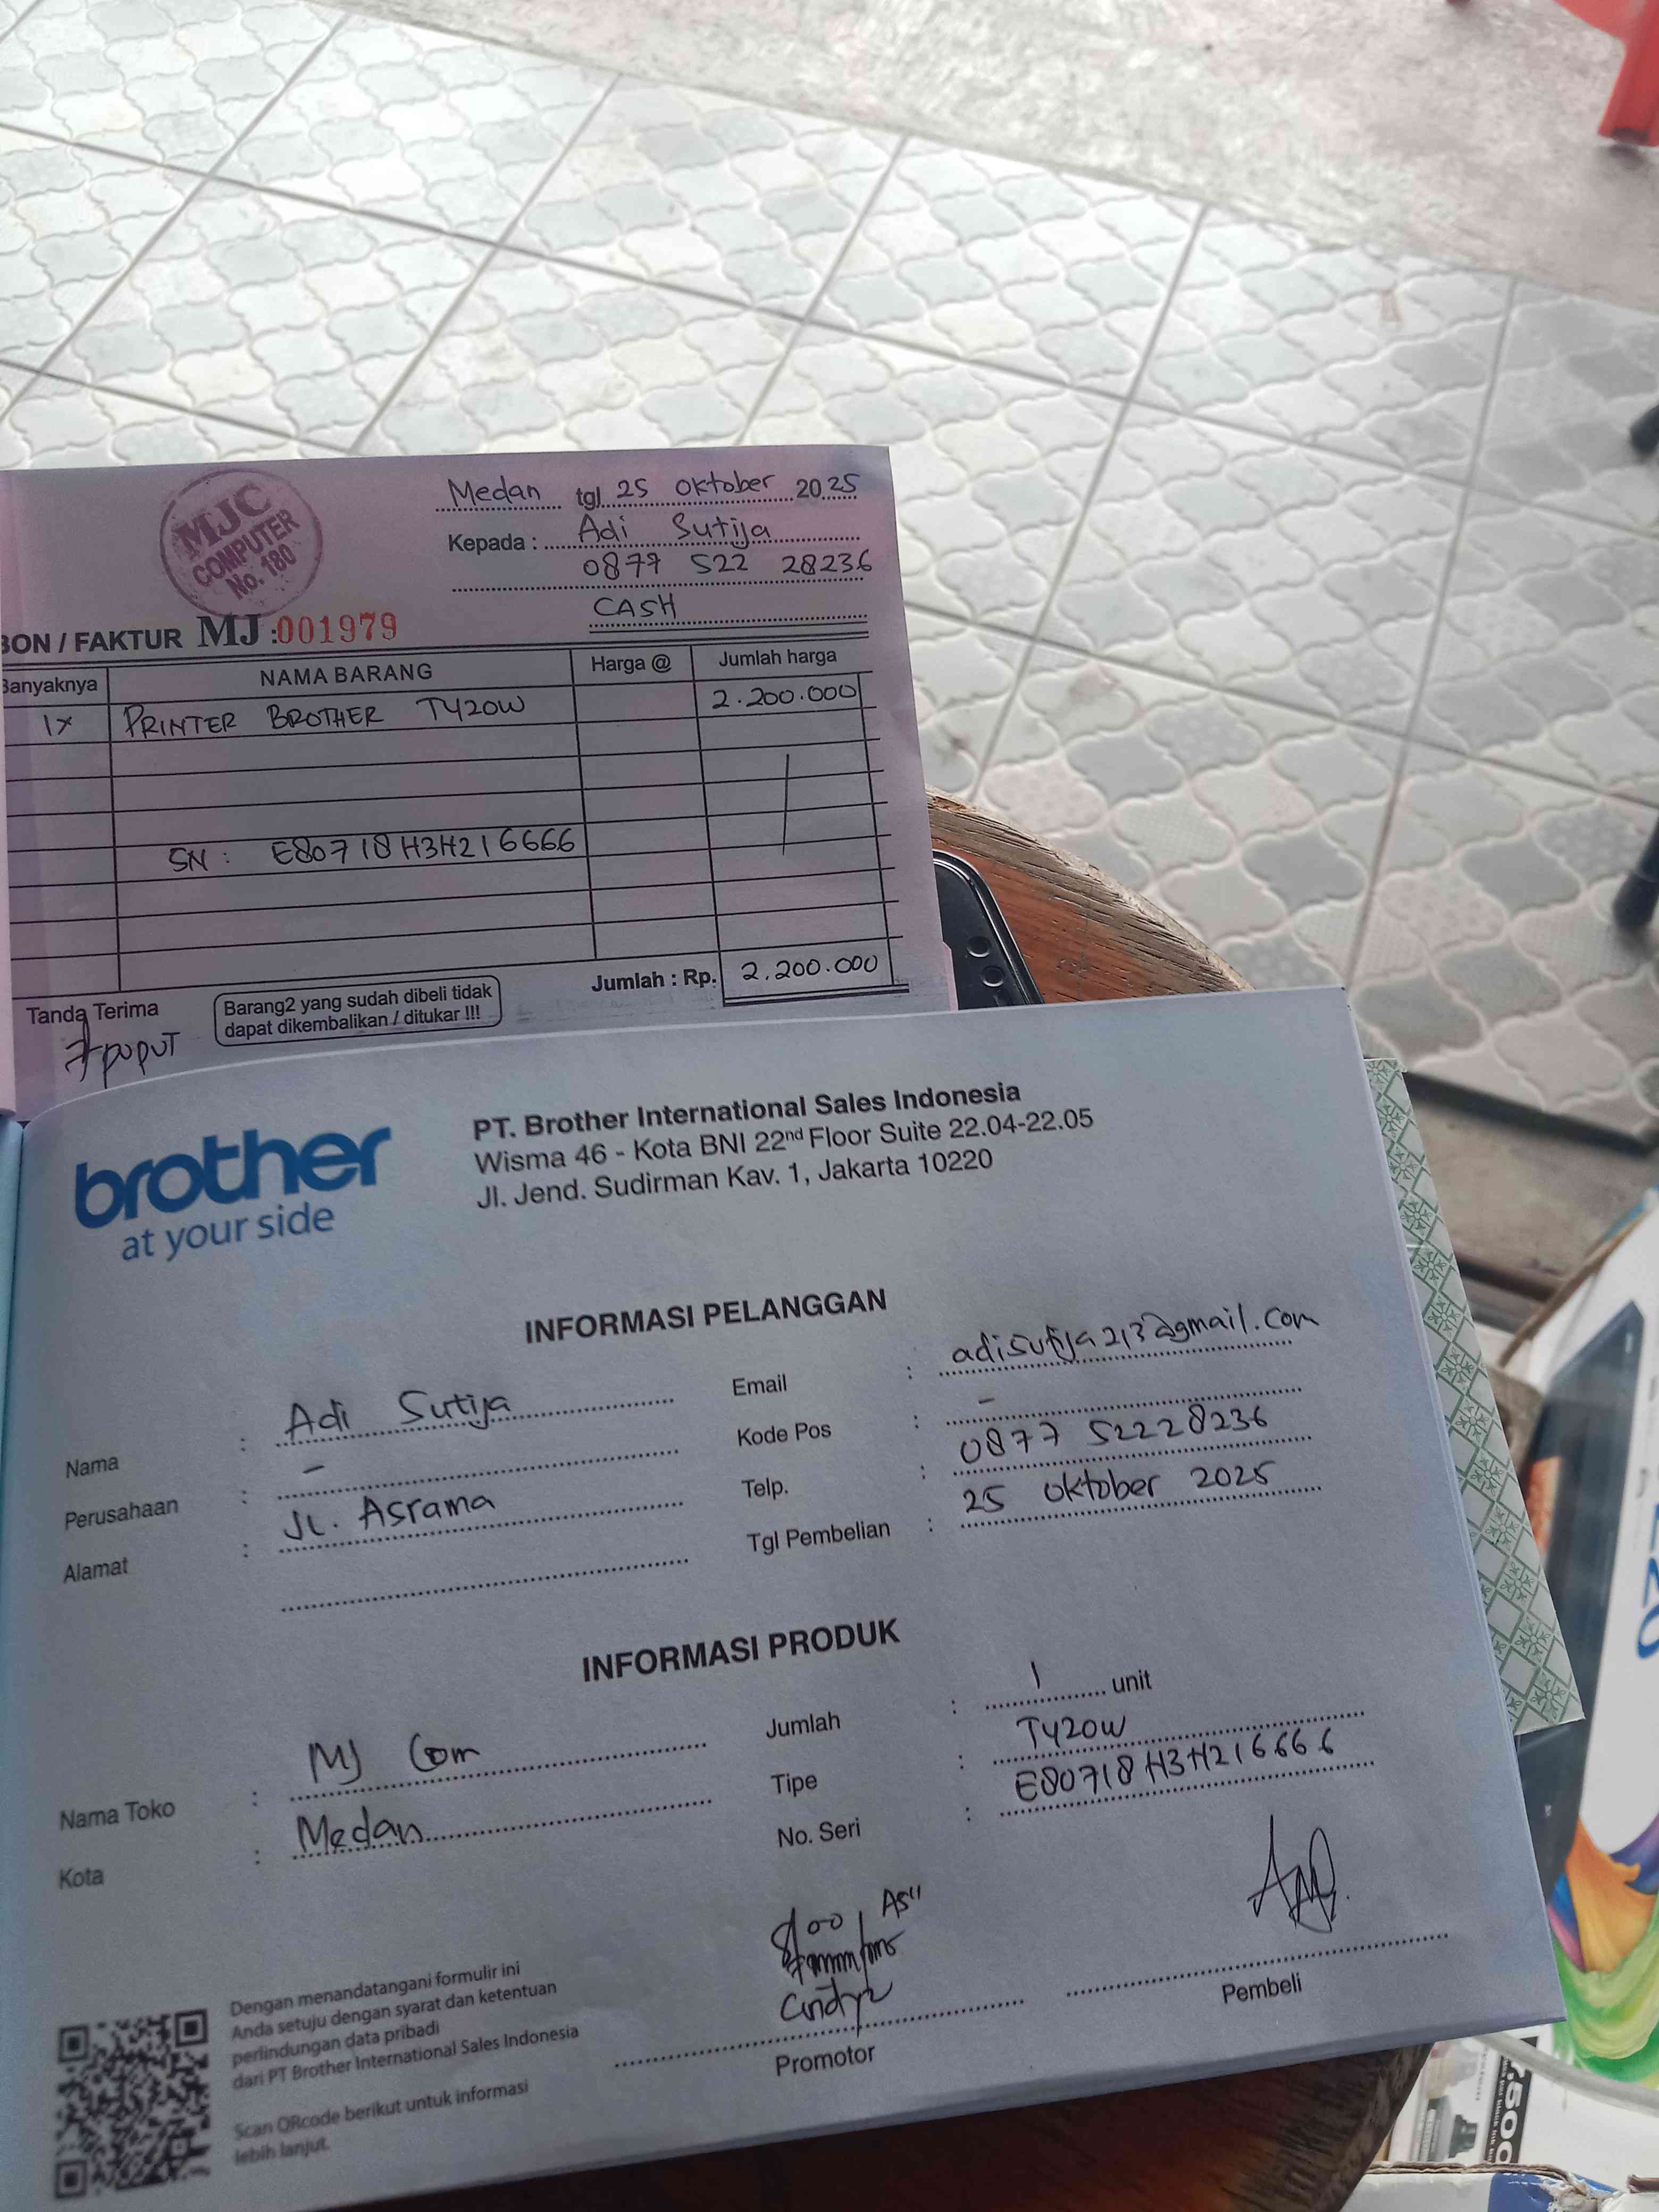 MJC
COMPUTER
No. 180
Medan tgl 25 Oktober 2025
Kepada : Adi Sutija
0877 522 28236
CASH
BON / FAKTUR MJ :001979
Banyaknya NAMA BARANG Harga @ Jumlah harga
1x PRINTER BROTHER T420W 2.200.000
SN : E80718H3H216666
Jumlah : Rp. 2.200.000
Tanda Terima
Barang2 yang sudah dibeli tidak
dapat dikembalikan / ditukar !!!
brother
at your side
PT. Brother International Sales Indonesia
Wisma 46 - Kota BNI 22nd Floor Suite 22.04-22.05
Jl. Jend. Sudirman Kav. 1, Jakarta 10220
INFORMASI PELANGGAN
Nama : Adi Sutija
Perusahaan : -
Alamat : JL. Asrama
Email : adisutija213@gmail.com
Kode Pos : -
Telp. : 0877 52228236
Tgl Pembelian : 25 Oktober 2025
INFORMASI PRODUK
Nama Toko : MJ Com
Kota : Medan
Jumlah : 1 unit
Tipe : T420W
No. Seri : E80718H3H216666
Dengan menandatangani formulir ini
Anda setuju dengan syarat dan ketentuan
perlindungan data pribadi
dari PT Brother International Sales Indonesia
Scan QRcode berikut untuk informasi
lebih lanjut.
Promotor
Pembeli